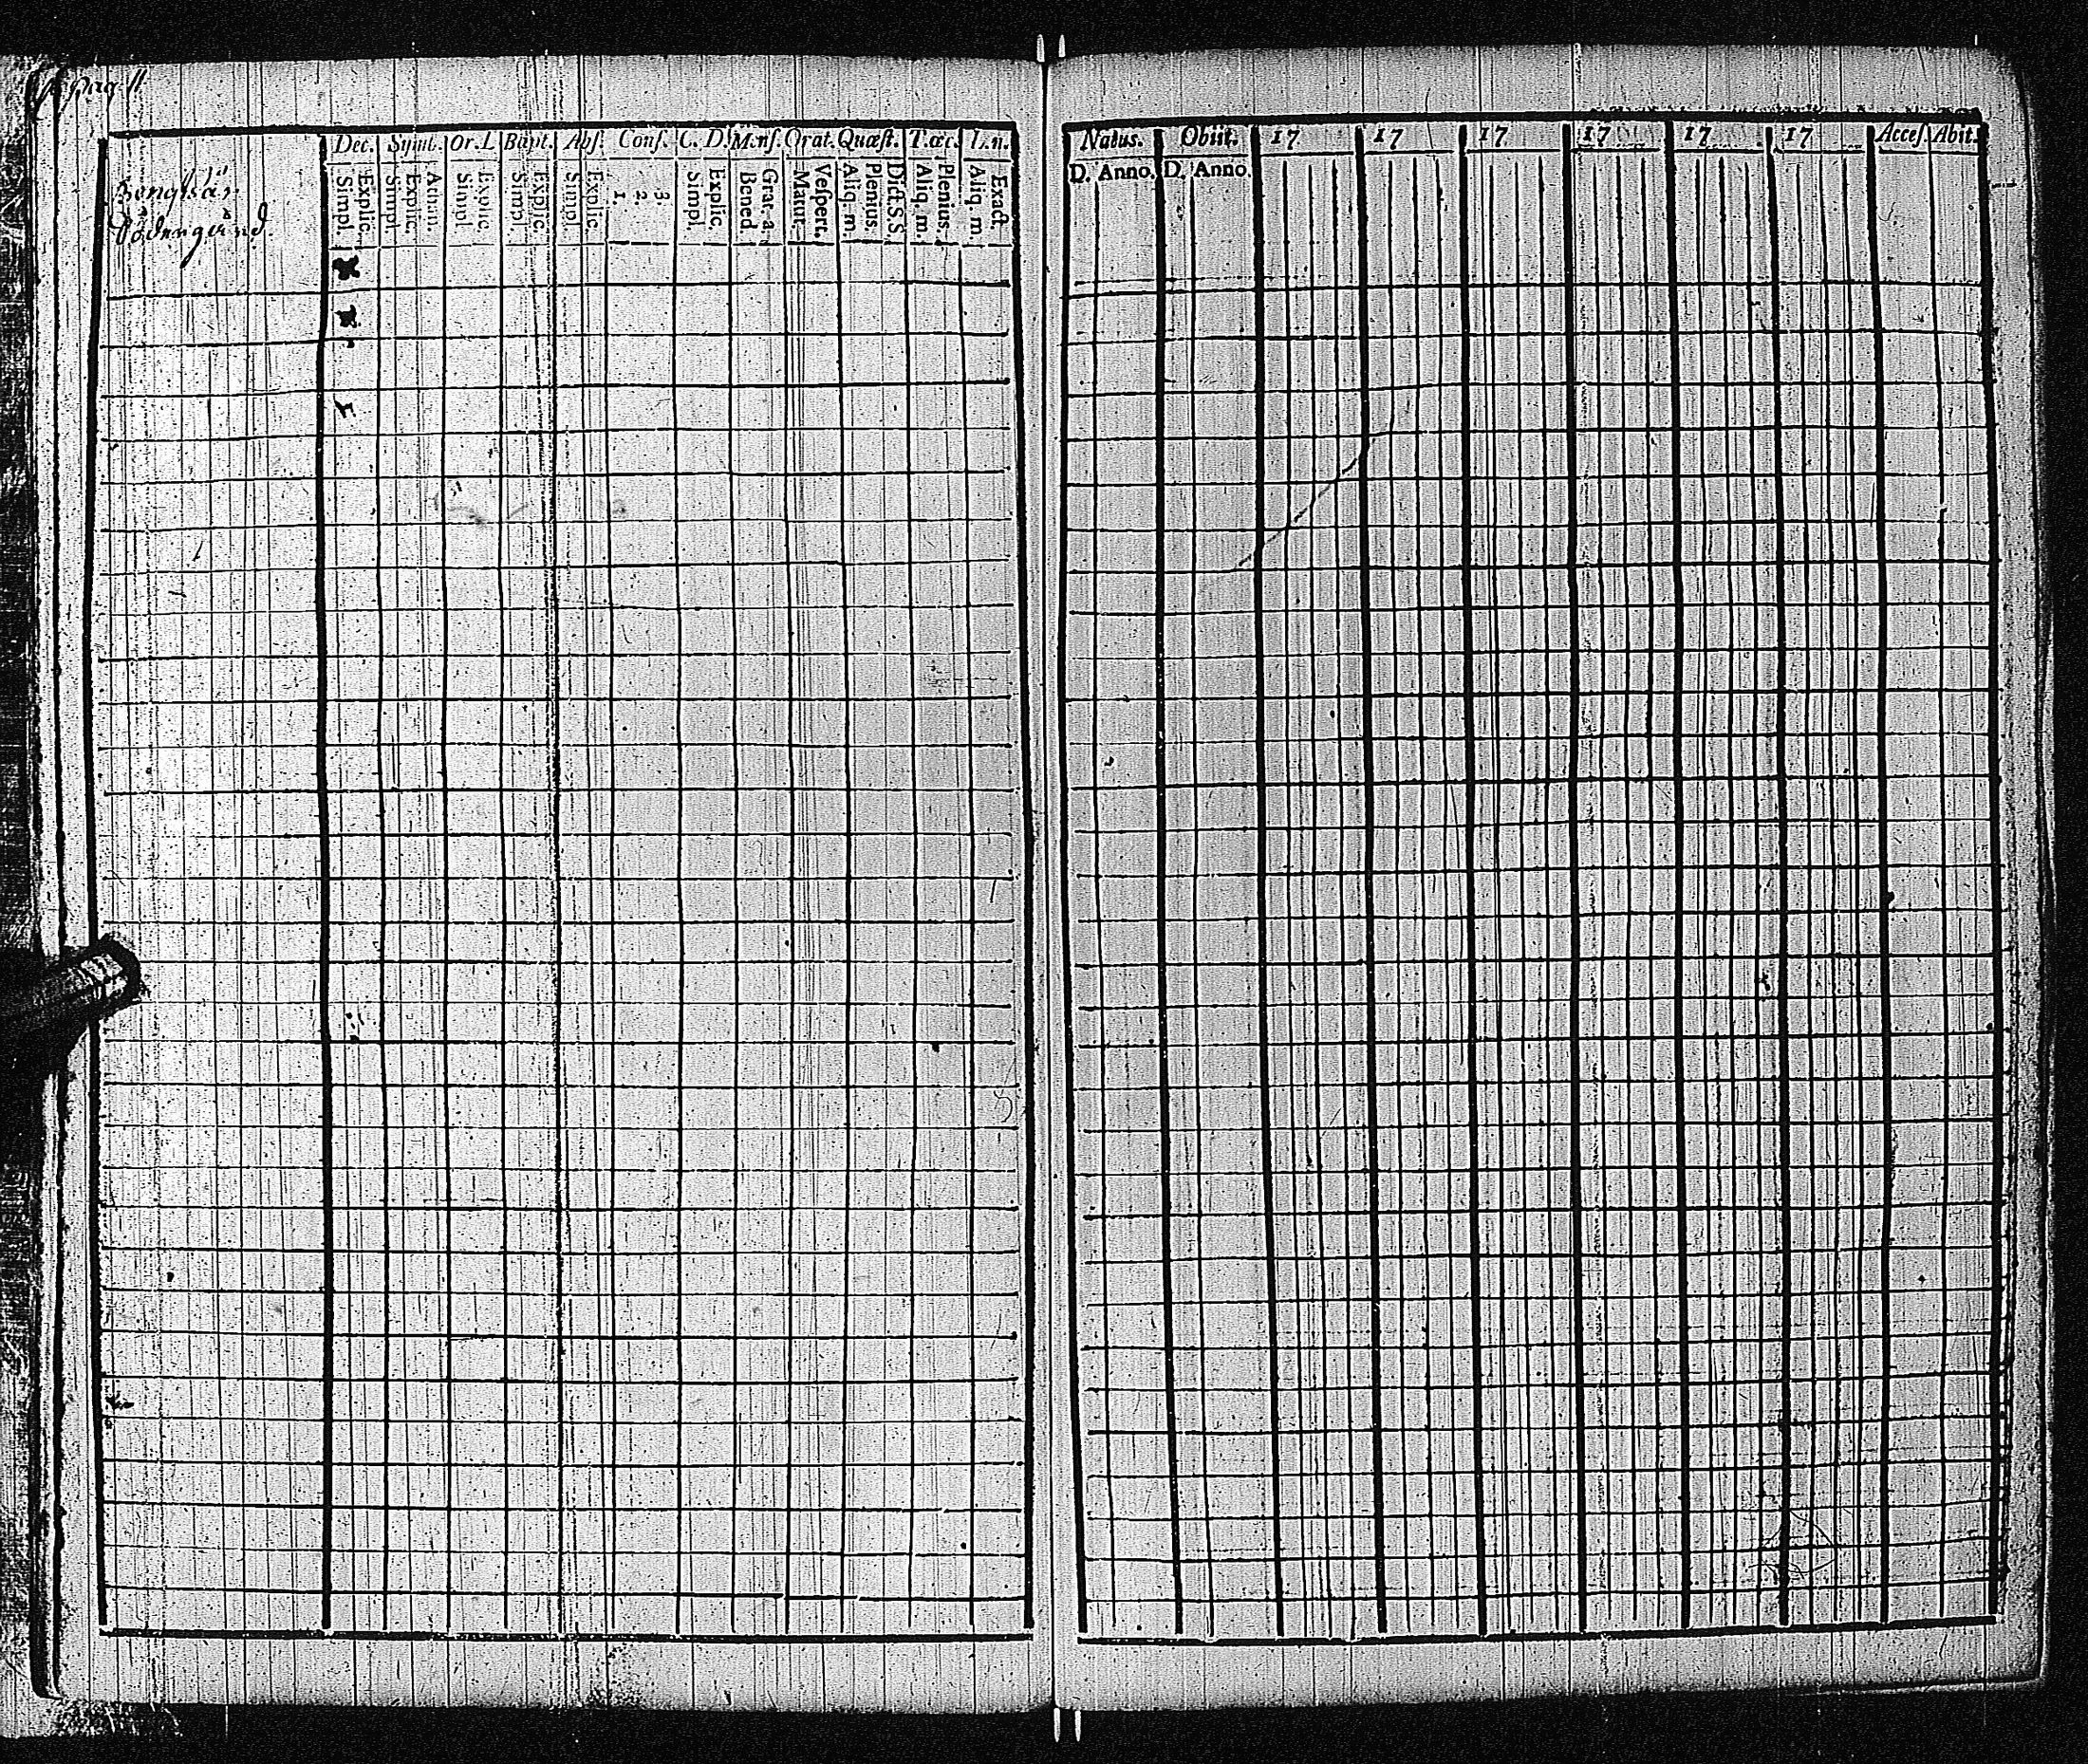 Dec. Symb. Or. L Bapt. Abs. Conf. C. D. Mens. Orat. Quæst. T. œc.
Simpl. Explic. Simpl. Explic. Athan. Simpl. Explic. Simpl. Explic. Simpl. Explic. 1. 2. 3. Simpl. Explic. Bened Grat. a. Matut. Vespert. Aliq. m. Plenius. Dict. S. S. Aliq. m. Plenius. Aliq. m. Exact.
Natus. Obiit. 17 17 17 17 17 17 Acces. Abit.
D. Anno. D. Anno.